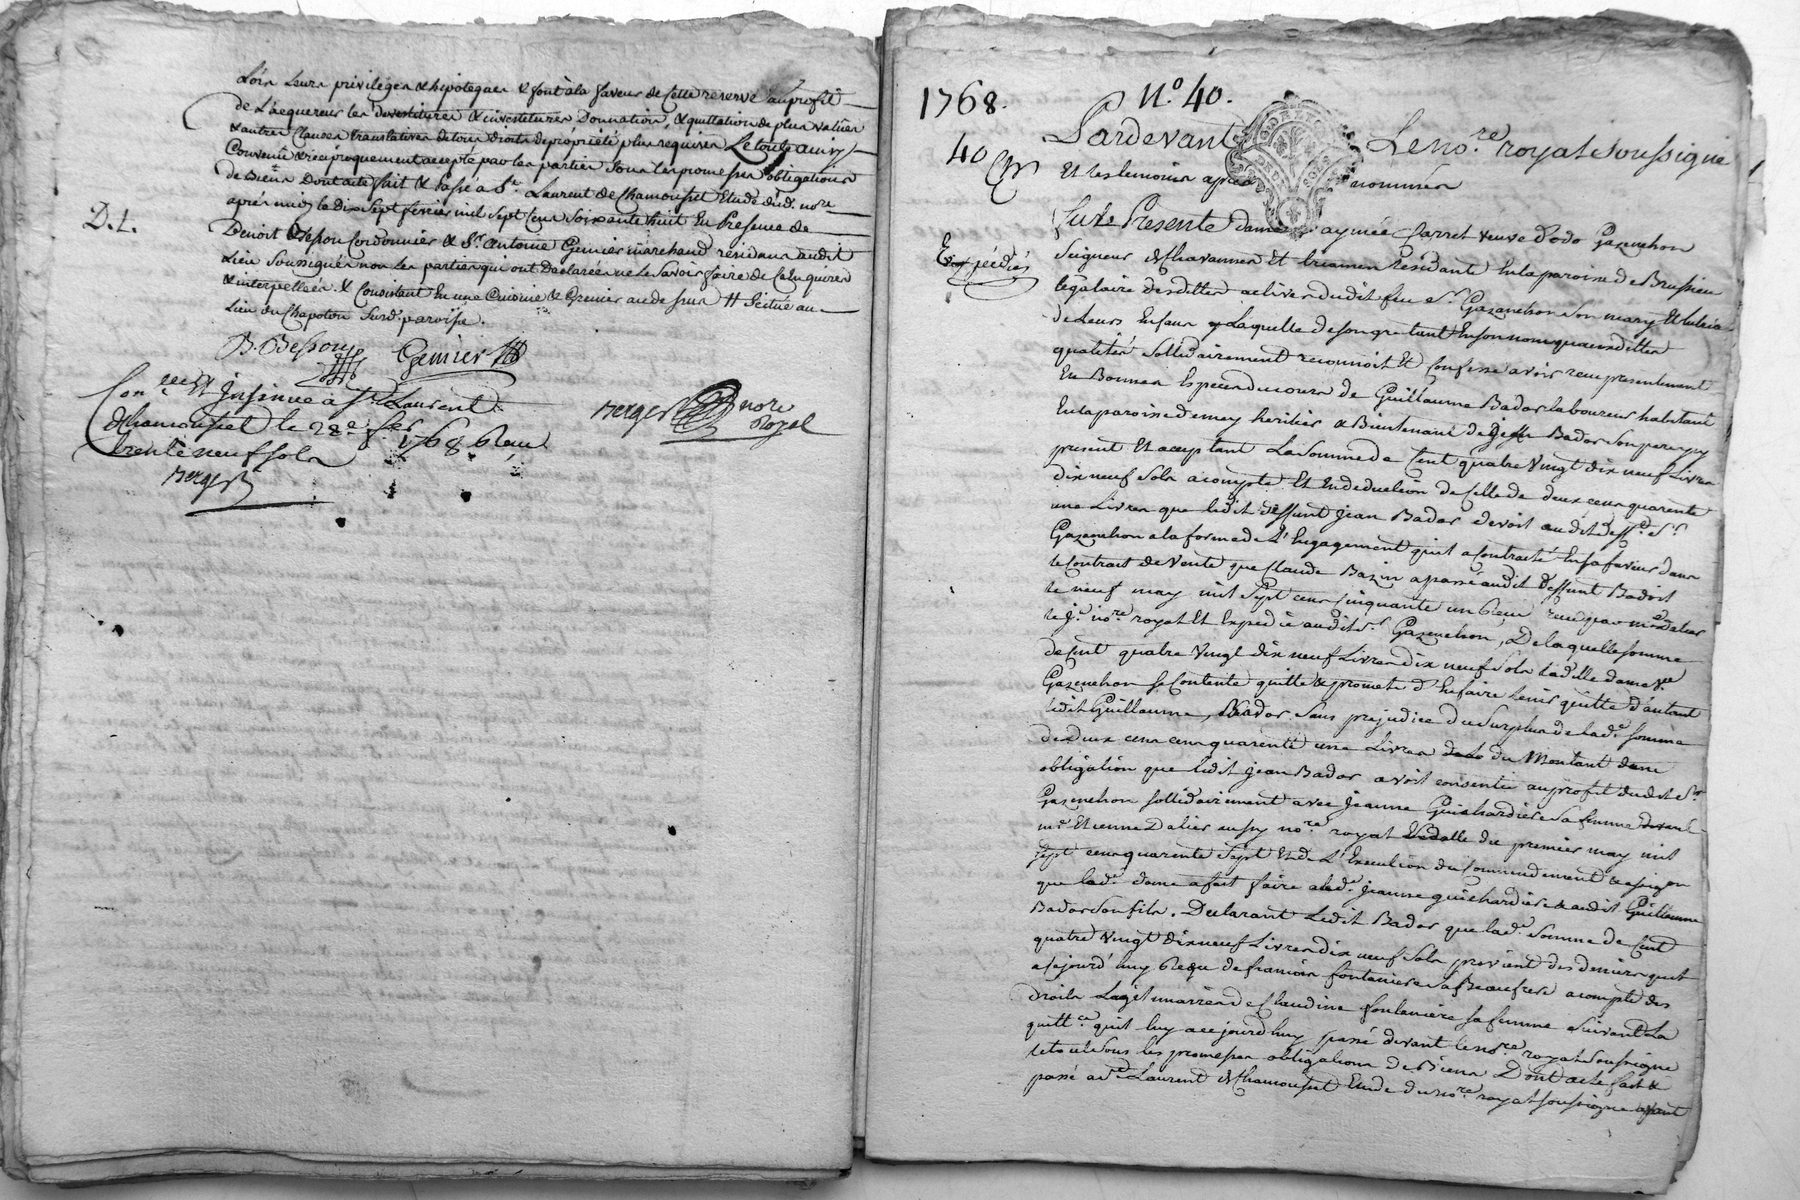 Loin leurs privileges & hipoteques & font à la faveur de cette reserve au profit
de L'acquereur les devestitures & investitures Donnation, & quittation de plus values
& autres Clauses translatives de tous droits de propriété plus requises Le tout ainsy
Convenu & reciproquement accepté par les parties sous les promesses obligations
de Biens Dont acte fait & Passé à St. Laurent de Chamousset Etude dud. nore
après midy le dix sept fevrier mil sept cens soixante huit En Presence de
D. L.
Benoit Besson Cordonnier & Sr. Antoine Genier marchand residans audit
Lieu Soussignés non les parties qui ont Declaré ne le Savoir faire de ce Enquises
& interpellées & Consistant En une Cuisine & Grenier au dessus // Scitué au
Lieu du Chapoton Susd. paroisse.
B. Besson
Genier
Berger nore Royal
Con.lé & Insinué à St. Laurent
de Chamousset le 28e fer 1768 Reçu
trente neuf sols
Berger
1768.
N.o 40.
40
Pardevant Le no.re royal soussigné
Et les temoins après nommés
Expédié
Fut Presente dame aymée Carret veuve d'odo Gazanchon
Seigneur de Chavannes Et Residante En la paroisse de Brussieu
legataire desdittes actives dudit feu Sr. Gazanchon Son mary Et
de Leurs Enfans Laquelle de son gré tant En son nom qu'auxdittes
qualités Sollidairement reconnoit Et Confesse avoir reçu presentement
En Bonnes Especes du cours de Guillaume Bador laboureur habitant
En la paroisse de mey heritier & Bientenant de Jean Bador Son pere y
present Et acceptant La Somme de Cent quatre Vingt dix neuf Livres
dix neuf Sols acompte Et En deduction de Celle de deux cens quarente
une Livres que ledit deffunt Jean Bador devoit audit deff.t Sr.
Gazanchon a la forme de L'Engagement qu'il a Contracté En sa faveur dans
le Contrat de Vente que Claude Bazin a passé audit deffunt Bador
le neuf may mil Sept cens Cinquante un Reçu par me dalier
le j.e no.re royal Et Expedié audit Sr. Gazanchon, De laquelle Somme
de Cent quatre Vingt dix neuf Livres dix neuf Sols Ladille dame v.ve
Gazanchon Se Contente quitte & promet d'En faire tenir quitte d'autant
ledit Guillaume Bador Sans prejudice du Surplus de lad.e Somme
de Deux cens quarente une Livres du Montant
obligation que ledit Jean Bador avoit consentie au profit dudit Sr.
Gazanchon Sollidairement avec Jeanne Guichardiere Sa femme devant
me. Etienne Dalier aussy no.re royal du premier may mil
Sept cens quarente Sept Et de L'Execution du Commendement
que lad.e dame a fait faire a lad.e Jeanne guichardiere & audit Guillaume
Bador Son fils. Declarant Ledit Bador que lad.e Somme de Cent
quatre Vingt dix neuf Livres dix neuf Sols provient des deniers qu'il
a cejourd'huy Reçu de françois fontaniere Sa Beaufrere acompte des
Droits Legitimaires de Claudine fontaniere Sa femme Suivant La
quitt.ce qu'il luy a cejourd'huy passé devant le no.re royal Soussigné
le tout Sous les promesses obligations de Biens Dont acte fait &
passé a St. Laurent de Chamousset Etude du no.re royal Soussigné avant